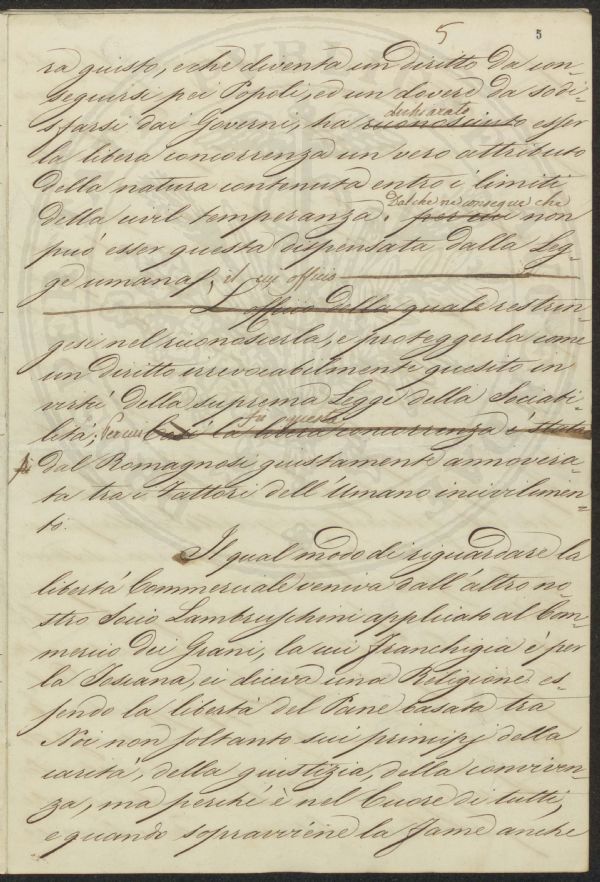 5 5
ra giusto, e che diventa un diritto da con=
seguirsi pei Popoli, ed un dovere da sodi=
dichiarato
sfarsi dai Governi, ha riconosciuto esser
la libera concorrenza un vero attributo
della natura contenuta entro i limiti
Dal che ne consegue che
della civil temperanza. per cui non
può esser questa dispensata dalla Leg=
ge umana, il cui officio
L'officio della quale restrin=
gesi nel riconoscerla, e proteggerla come
un diritto irrevocabilmente quesito in
virtù della suprema Legge della Sociabi=
fu questa
lità. Per cui Così la libera concorrenza è stata
dal Romagnosi giustamente annovera=
ta tra i Fattori dell'Umano incivilimen=
to.
Il qual modo di riguardare la
libertà Commerciale veniva dall'altro no
stro Socio Lambruschini applicato al Com=
mercio dei Grani, la cui franchigia è per
la Toscana, ei diceva una Religione es=
sendo la libertà del Pane basata tra
Noi non soltanto sui principj della
carità, della giustizia, della conviven
za, ma perchè è nel Cuore di tutti,
e quando sopravviene la fame anche